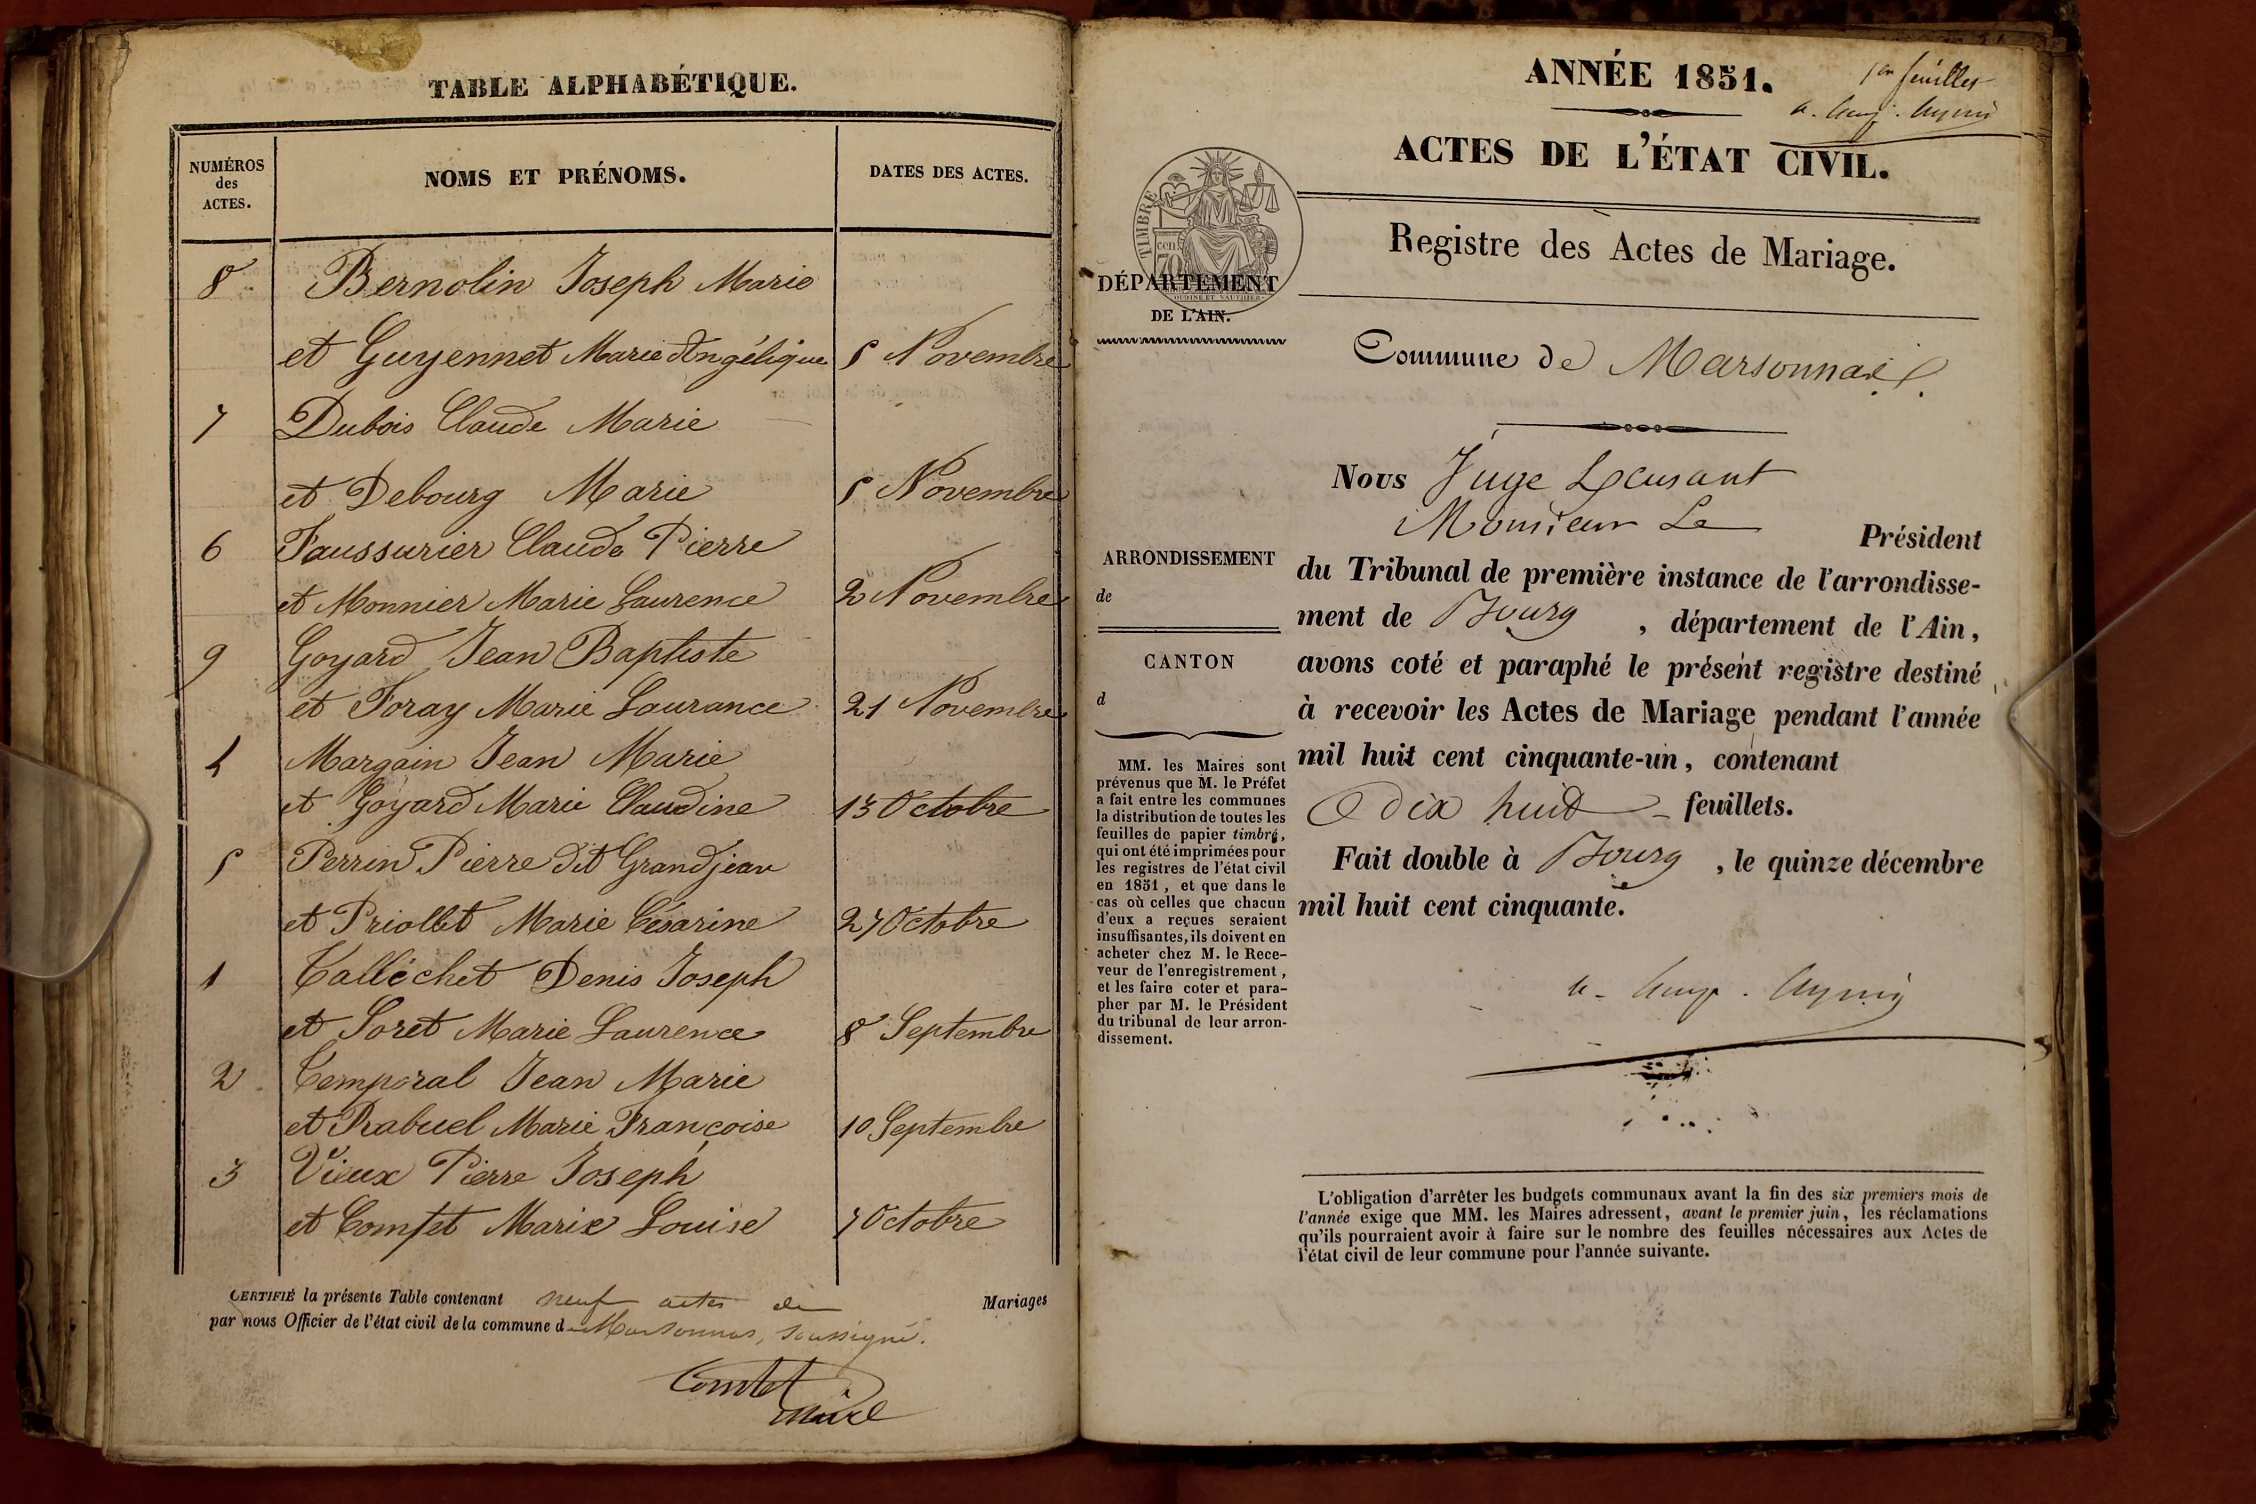 TABLE ALPHABÉTIQUE.
NUMÉROS
des
ACTES.
NOMS ET PRÉNOMS.
DATES DES ACTES.
8 Bernolin Joseph Marie
et Guyennet Marie Angélique 5 Novembre
7 Dubois Claude Marie
et Debourg Marie 5 Novembre
6 Faussurier Claude Pierre
et Monnier Marie Laurence 2 Novembre
9 Goyard Jean Baptiste
et Foray Marie Laurance 21 Novembre
4 Margain Jean Marie
et Goyard Marie Claudine 13 Octobre
5 Perrin Pierre dit Grandjean
et Priollet Marie Césarine 27 Octobre
1 Talléchet Denis Joseph
et Soret Marie Laurence 8 Septembre
2 Temporal Jean Marie
et Rabuel Marie Françoise 10 Septembre
3 Vieux Pierre Joseph
et Comtet Marie Louise 7 Octobre
CERTIFIÉ la présente Table contenant neuf actes de Mariages
par nous Officier de l'état civil de la commune de Marsonnas, soussigné.
Comtet
maire
ANNÉE 1851.
1er feuillet
ACTES DE L'ÉTAT CIVIL.
TIMBRE
70
cen
OUDINE ET VAUTHIER
DÉPARTEMENT
DE L'AIN.
Registre des Actes de Mariage.
Commune de Marsonnas
Nous Juge
Monsieur Le Président
ARRONDISSEMENT
de
CANTON
d
du Tribunal de première instance de l'arrondisse-
ment de Bourg, département de l'Ain,
avons coté et paraphé le présent registre destiné
à recevoir les Actes de Mariage pendant l'année
mil huit cent cinquante-un, contenant
dix huit feuillets.
Fait double à Bourg, le quinze décembre
mil huit cent cinquante.
MM. les Maires sont
prévenus que M. le Préfet
a fait entre les communes
la distribution de toutes les
feuilles de papier timbré,
qui ont été imprimées pour
les registres de l'état civil
en 1851, et que dans le
cas où celles que chacun
d'eux a reçues seraient
insuffisantes, ils doivent en
acheter chez M. le Rece-
veur de l'enregistrement,
et les faire coter et para-
pher par M. le Président
du tribunal de leur arron-
dissement.
L'obligation d'arrêter les budgets communaux avant la fin des six premiers mois de
l'année exige que MM. les Maires adressent, avant le premier juin, les réclamations
qu'ils pourraient avoir à faire sur le nombre des feuilles nécessaires aux Actes de
l'état civil de leur commune pour l'année suivante.